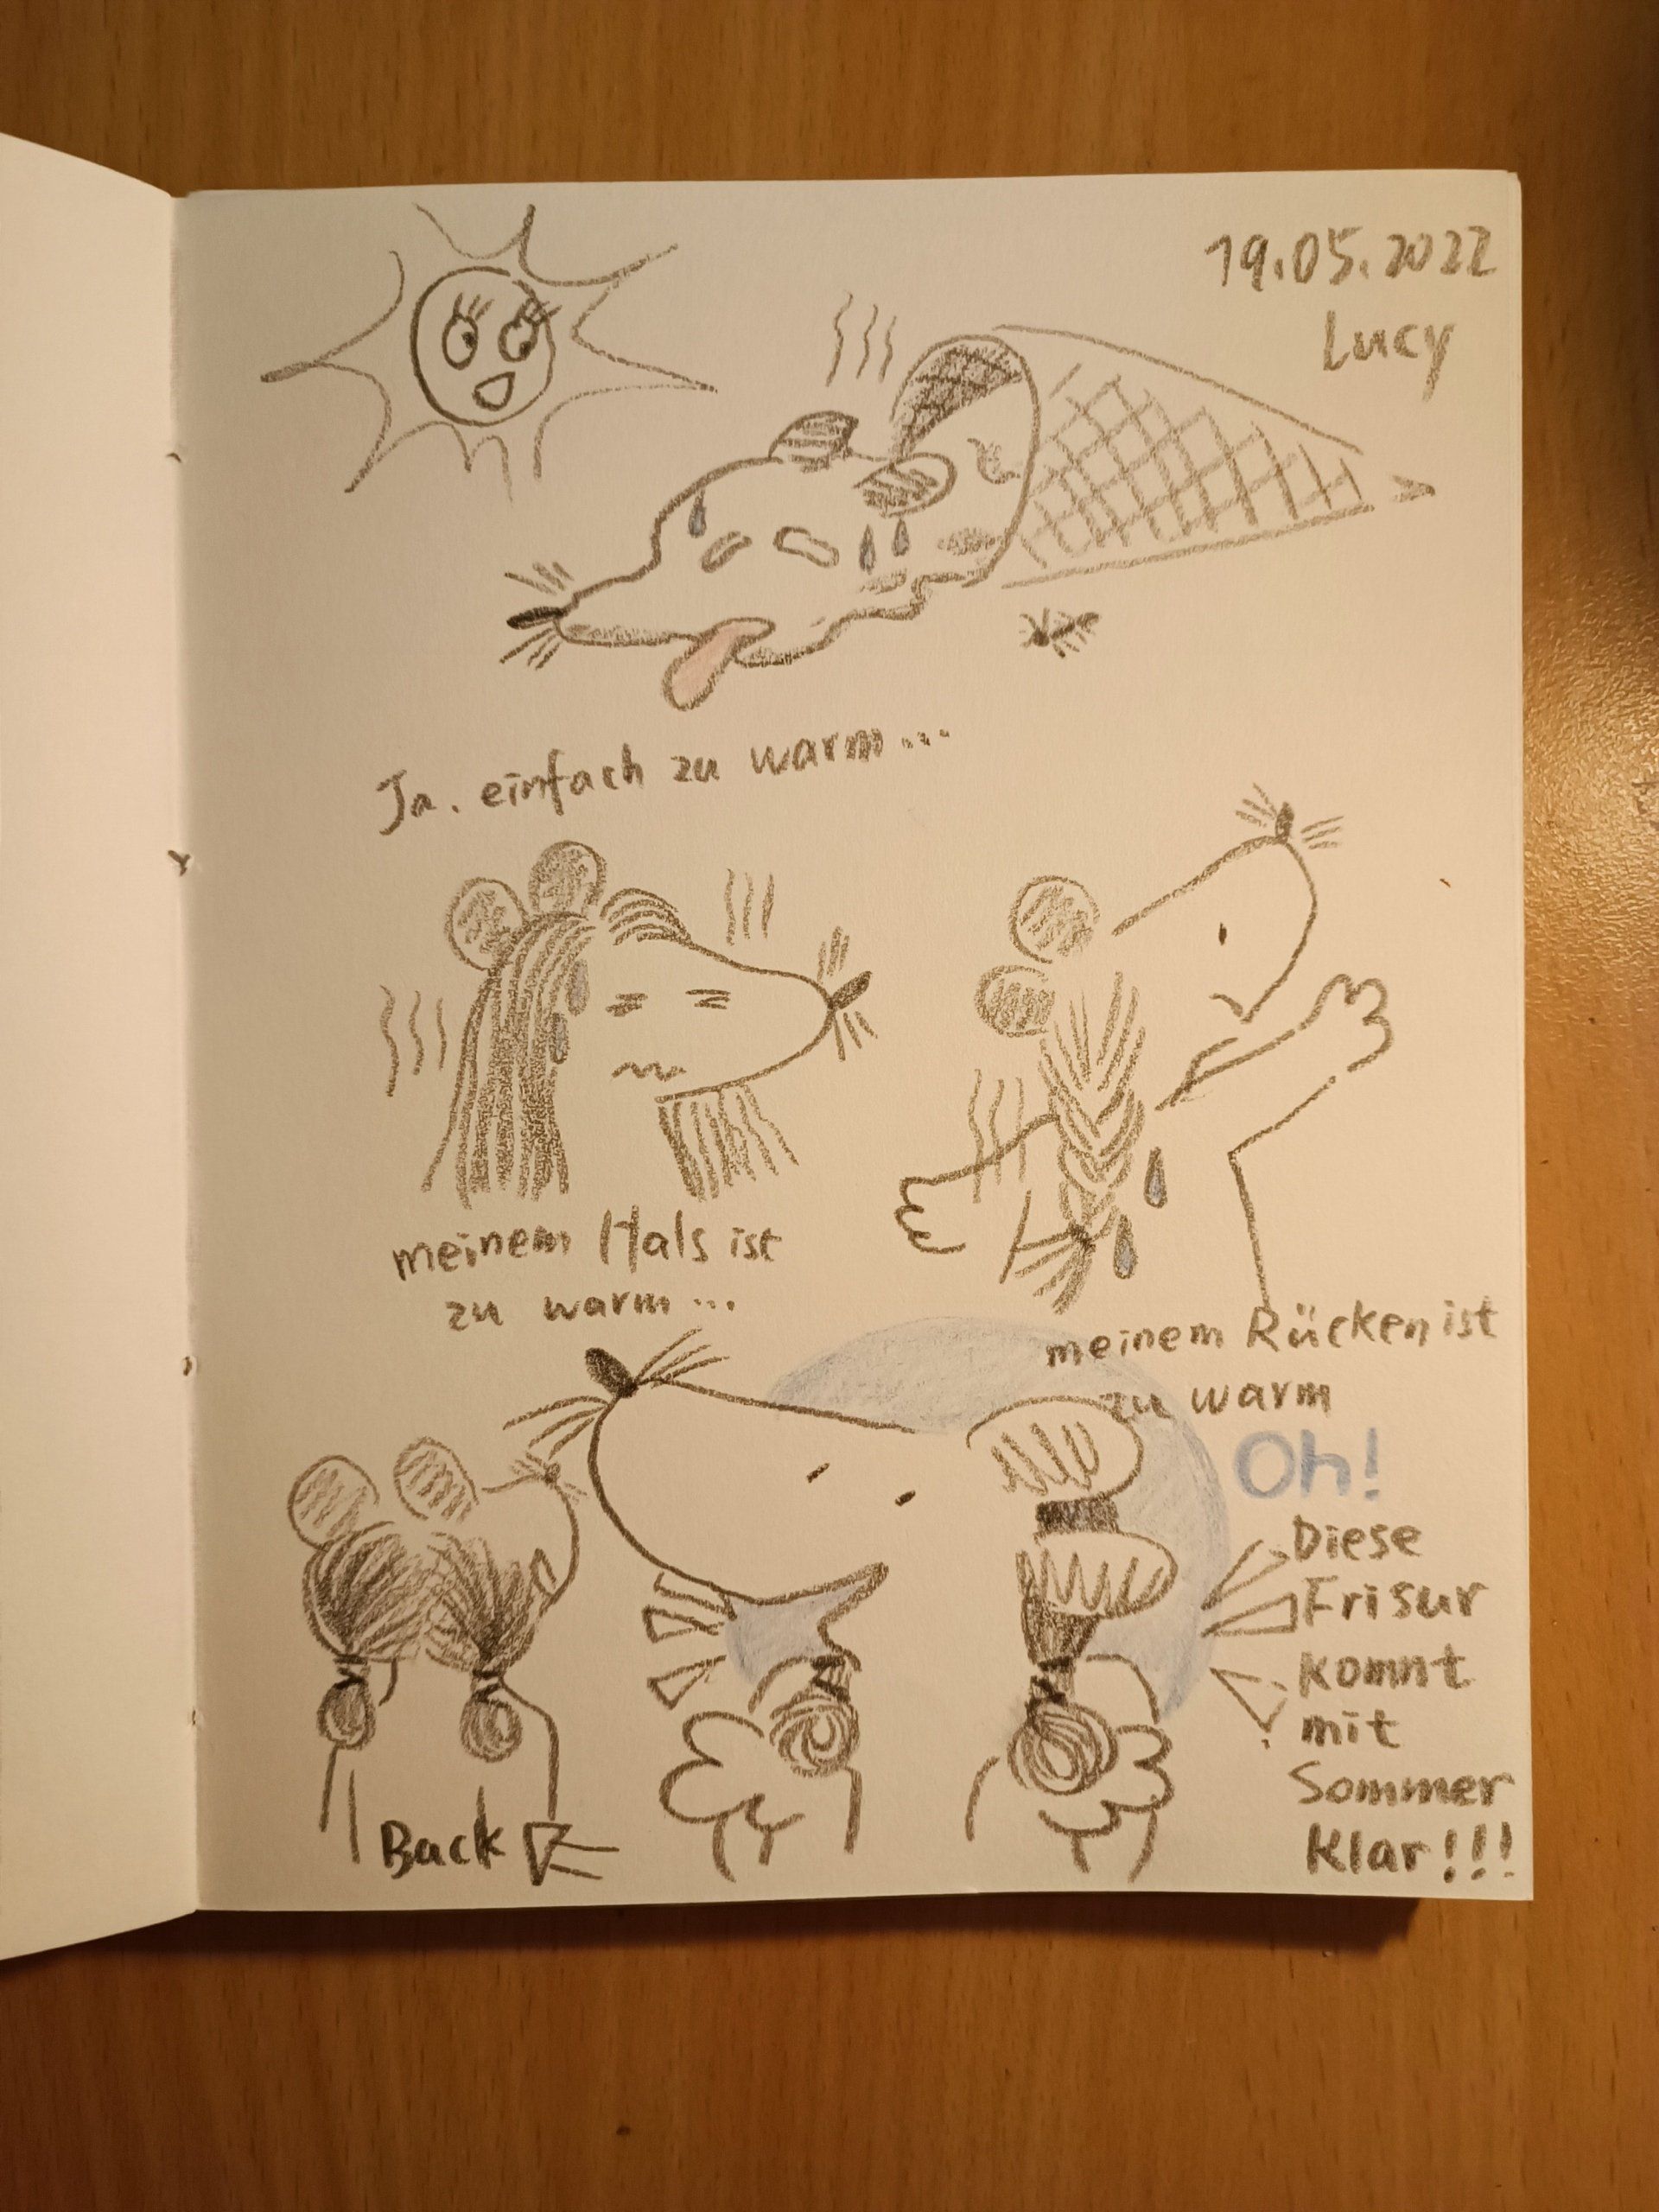 19.05.2022
Lucy
Ja. einfach zu warm...
meinem Hals ist
zu warm...
meinem Rücken ist
zu warm
Oh!
Diese
Frisur
kommt
mit
Sommer
Klar!!!
Back